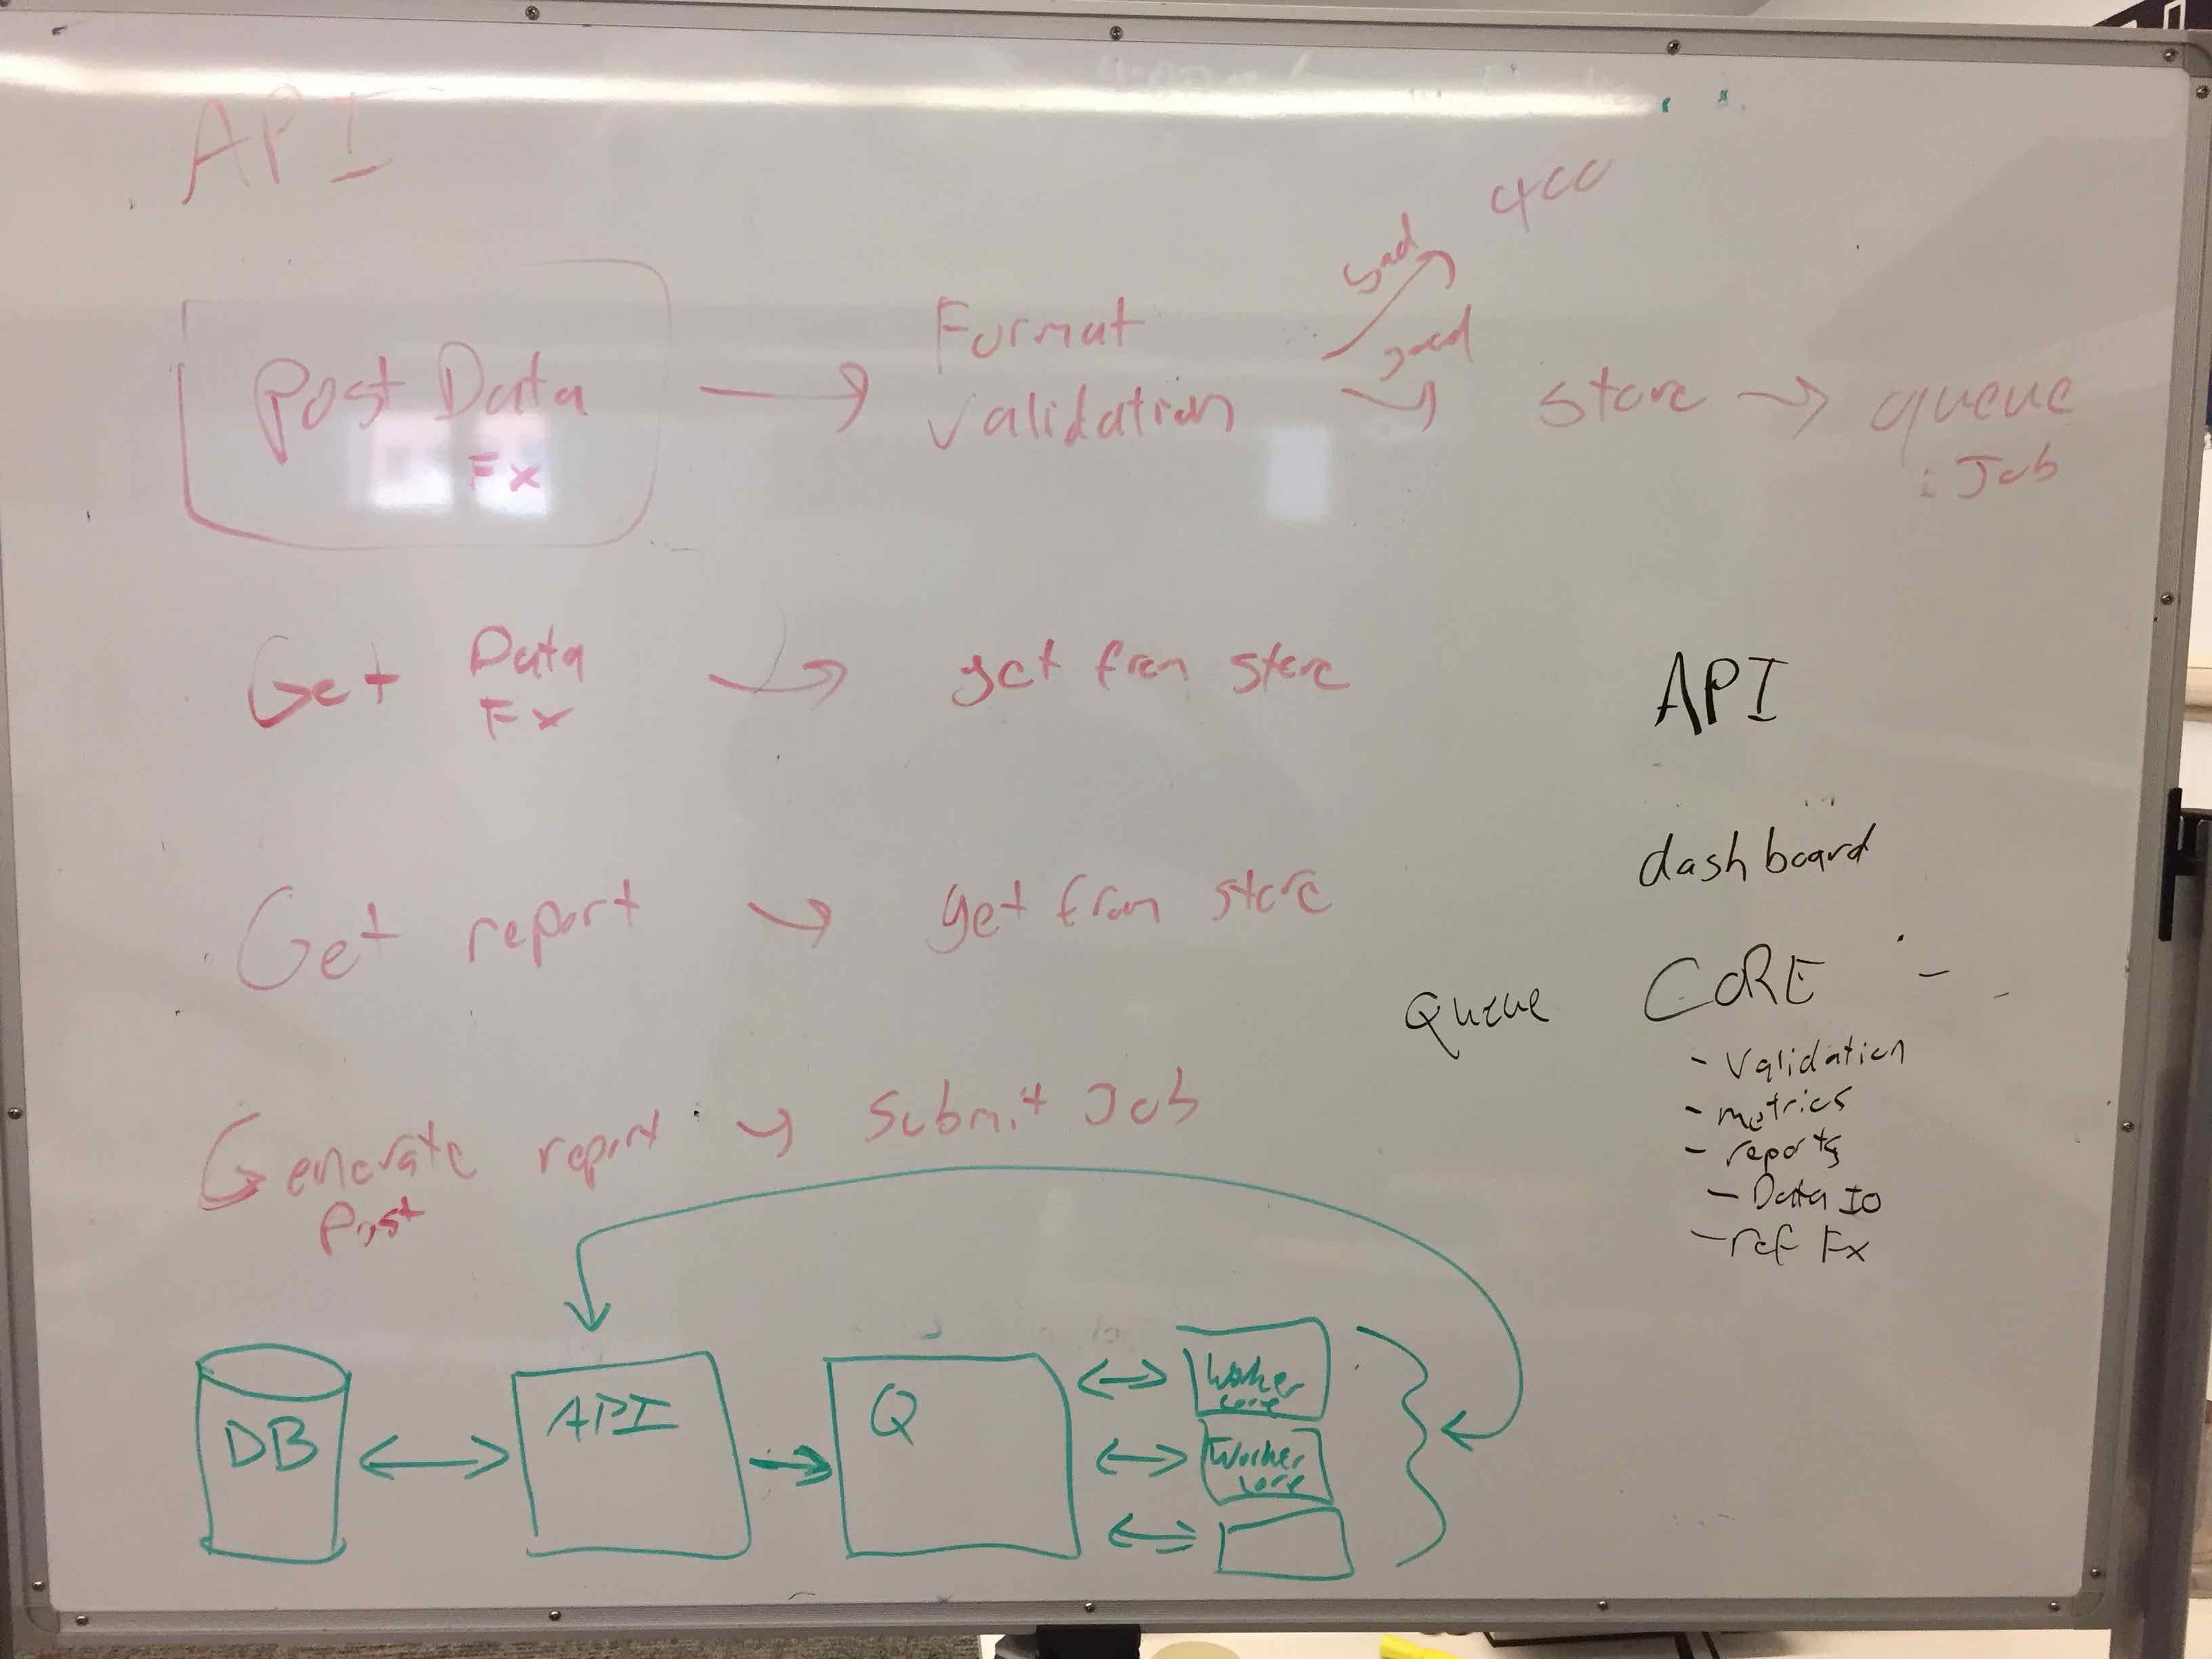 API
400
bad
good
Post Data
Fx
Format
validation
store
queue
Job
Get Data
Fx
get from store
Get report
get from store
Generate report
Post
Submit Job
API
dashboard
Queue
CORE
- Validation
- metrics
- reports
- Data IO
- ref Fx
DB
API
Q
Worker
core
Worker
core